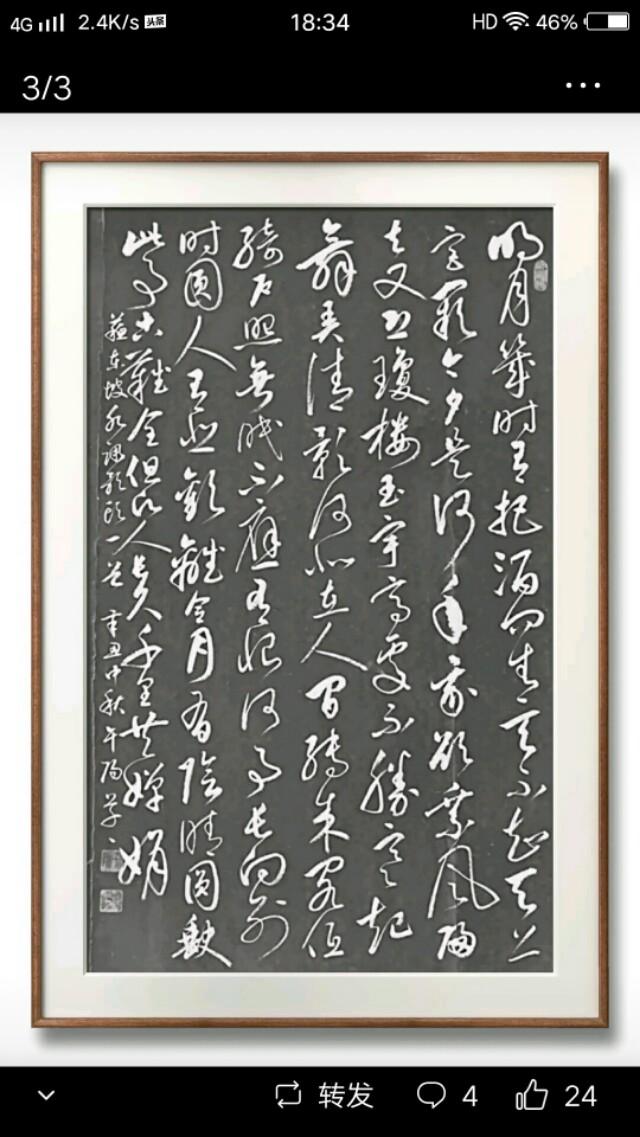 4G 2.4K/s 头条 18:34 HD 46%
3/3
明月幾时有把酒问青天不知天上
宫阙今夕是何年我欲乘风归
去又恐瓊樓玉宇高处不勝寒起
舞弄清影何似在人间转朱阁低
绮户照無眠不應有恨何事长向别
时圆人有悲歡離合月有陰晴圆缺
此事古難全但願人长久千里共嬋娟
蘇东坡水调歌头一首 辛丑中秋午阳
转发 4 24